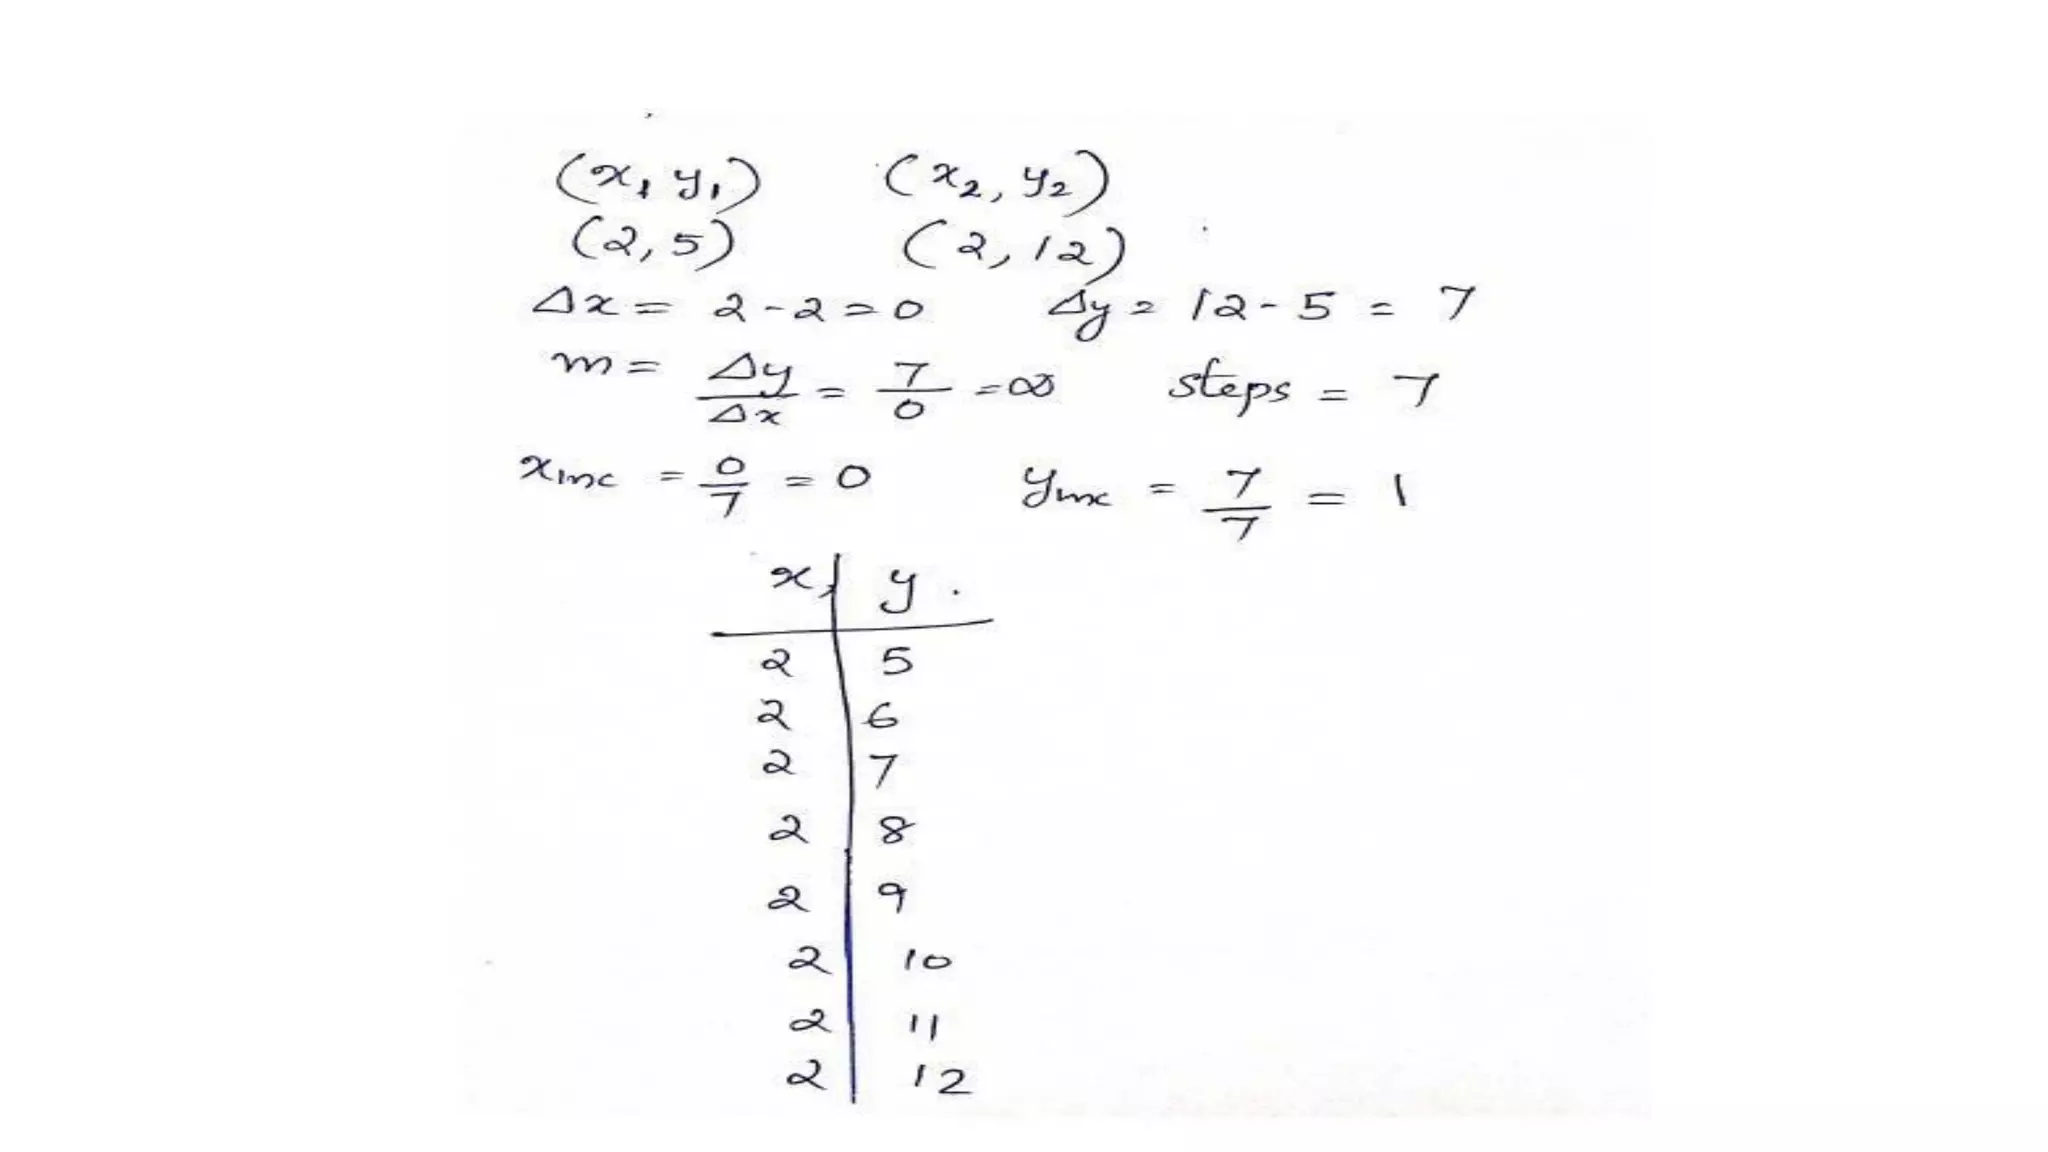 (x₁ y₁) (x₂, y₂)
(2, 5) (2, 12)
Δx = 2 - 2 = 0 Δy = 12 - 5 = 7
m = Δy/Δx = 7/0 = ∞ steps = 7
xinc = 0/7 = 0 yinc = 7/7 = 1
x, y.
2 5
2 6
2 7
2 8
2 9
2 10
2 11
2 12